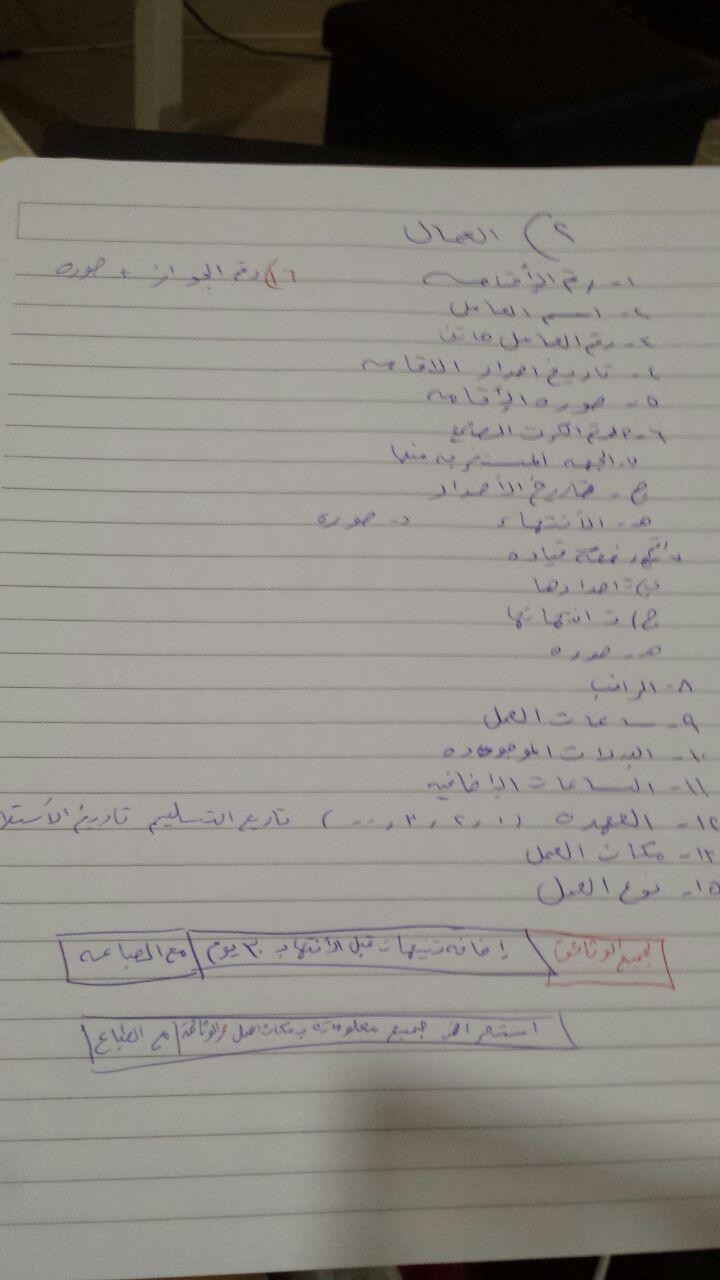 ٢) العمال
١- رقم الإقامه
١٦) رقم الجواز + صوره
٢- اسم العامل
٣- رقم العامل هاتف
٤- تاريخ اصدار الاقامه
٥- صوره الإقامه
٦- رقم الكرت الصحي
ج- تاريخ الأصدار
هـ- الأنتهاء د- صوره
رخصة قياده
ب) ت اصدارها
ج) ت انتهائها
هـ- صوره
٨- الراتب
٩- ساعات العمل
١٠- البدلات الموجوده
١١- الساعات الإضافيه
١٢- العهده (١, ٢, ٣, ...) تاريخ التسليم تاريخ الأستلا
١٣- مكان العمل
١٥- نوع العمل
لجميع الوثائق إضافه تنبيهات قبل الأنتهاء بـ ٣٠ يوم مع الطباعه
استعراض جميع معلوماته بمكان العمل والوثائق مع الطباع